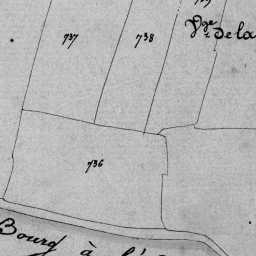 737
738
Vge de la
736
Bourg à l'